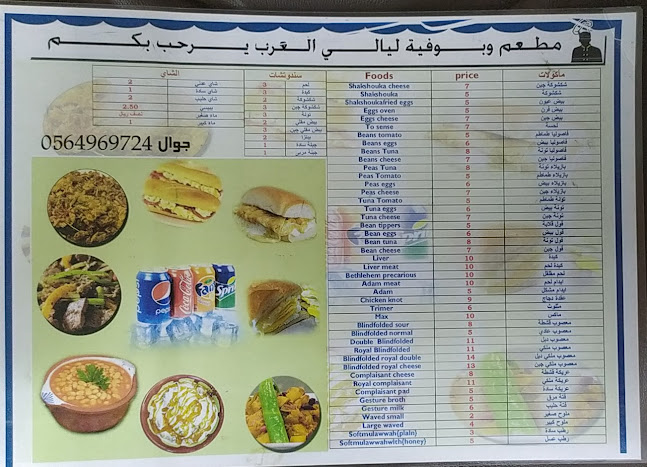 مطعم وبوفية ليالي العرب يرحب بكم
الشاي
شاي عدني 2
شاي سادة 1
شاي حليب 2
بيبسي 2.50
ماء صغير نصف ريال
ماء كبير 1
سندوتشات
لحم 3
كبدة 3
شكشوكة 2
شكشوكة جبن 3
تونة 3
بيض مقلي 2
بيض مقلي جبن 3
2
جبنة سادة 1
جبنة مربى 1
جوال 0564969724
Foods price مأكولات
Shakshouka cheese 7 شكشوكة جبن
Shakshouka 5 شكشوكة
Shakshoukafried eggs 5 بيض عيون
Eggs oven 5 بيض فرن
Eggs cheese 7 بيض جبن
To sense 7 لحسة
Beans tomato 5 فاصوليا طماطم
Beans eggs 6 فاصوليا بيض
Beans Tuna 8 فاصوليا تونة
Beans cheese 7 فاصوليا جبن
Peas Tuna 8 بازيلاء تونة
Peas Tomato 5 بازيلاء طماطم
Peas eggs 6 بازيلاء بيض
Peas cheese 7 بازيلاء جبن
Tuna Tomato 5 تونة طماطم
Tuna eggs 6 تونة بيض
Tuna cheese 7 تونة جبن
Bean tippers 5 فول قلابة
Bean eggs 6 فول بيض
Bean tuna 8 فول تونة
Bean cheese 7 فول جبن
Liver 10 كبدة
Liver meat 10 كبدة لحم
Bethlehem precarious 10 لحم مقلقل
Adam meat 10 ايدام لحم
Adam 5 ايدام مشكل
Chicken knot 9 عقدة دجاج
Trimer 6 مثلوث
Max 10 ماكس
Blindfolded sour 8 معصوب قشطة
Blindfolded normal 5 معصوب عادي
Double Blindfolded 11 معصوب دبل
Royal Blindfolded 11 معصوب ملكي
Blindfolded royal double 14 معصوب ملكي دبل
Blindfolded royal cheese 13 معصوب ملكي جبن
Complaisant cheese 8 عريكة قشطة
Royal complaisant 11 عريكة ملكي
Complaisant pad 5 عريكة سادة
Gesture broth 5 فتة مرق
Gesture milk 6 فتة حليب
Waved small 2 ملوح صغير
Large waved 4 ملوح كبير
Softmulawwah(plain) 3 رطب سادة
Softmulawwahwith(honey) 5 رطب عسل
pepsi
Coca-Cola
Fanta
Sprite